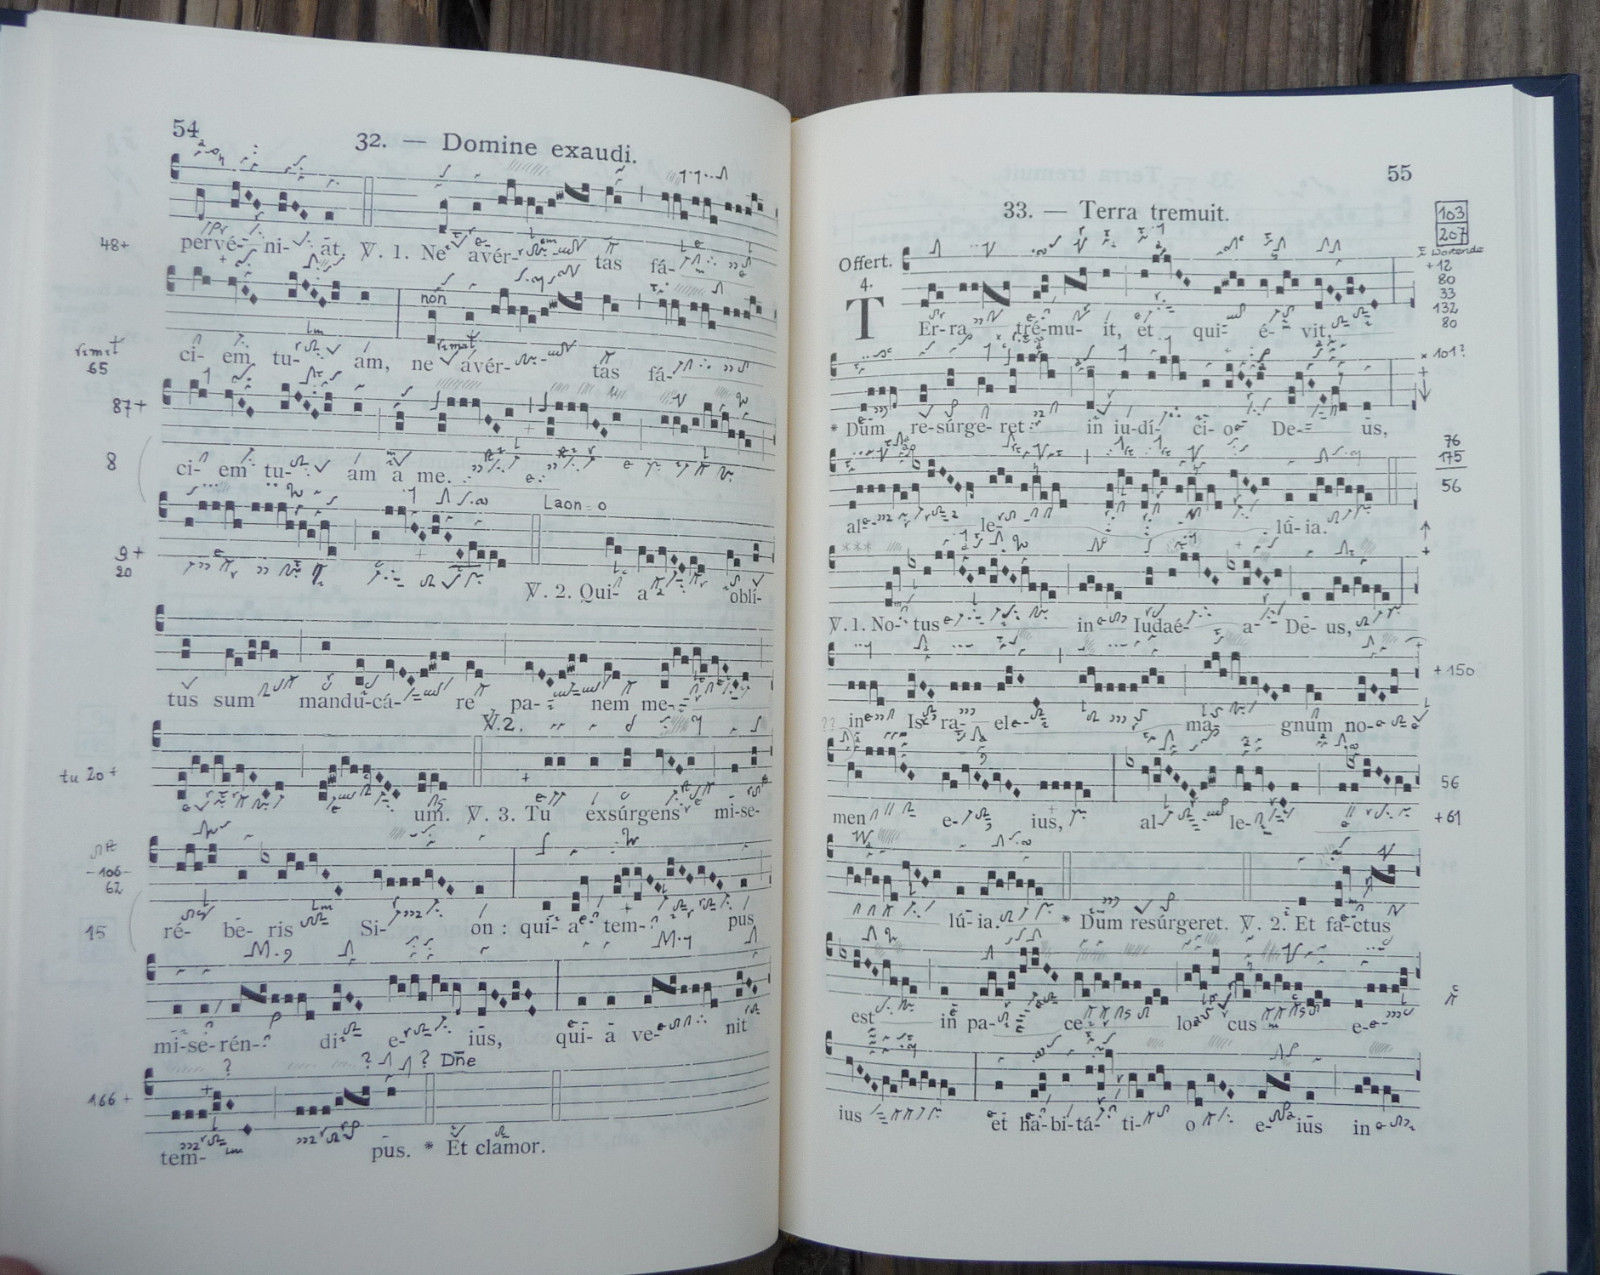 54
32. — Domine exaudi.
48+ pervé- ni- at. ℣. 1. Ne avér- tas fá-
non
rimat 65 ci- em tu- am, ne avér- tas fá-
87+
8 ci- em tu- am a me.
Laon
9+ 20 ℣. 2. Qui- a oblí-
tus sum mandu-cá- re pa- nem me-
℣.2.
tu 20+ um. ℣. 3. Tu exsúrgens mi-se-
-106- 62
15 ré- be- ris Si- on : qui- a tem- pus
mi-se-rén- di e- ius, qui- a ve- nit
? ? ? Dne
166+ tem- pus. * Et clamor.
55
33. — Terra tremuit.
103
207
Offert. 4. +12
80
33
132
80
TEr-ra tré-mu- it, et qui- é- vit
101?
* Dum re-súrge- ret in iu-dí- ci- o De- us,
76
175
56
al- le- lú- ia.
℣. 1. No- tus in Iudaé- a De- us,
+150
in Is- ra- el magnum no-
56
men e- ius, al- le- +61
lú- ia. * Dum resúrgeret. ℣. 2. Et fa-ctus
est in pa- ce lo- cus e-
ius et ha-bi-tá- ti- o e- ius in